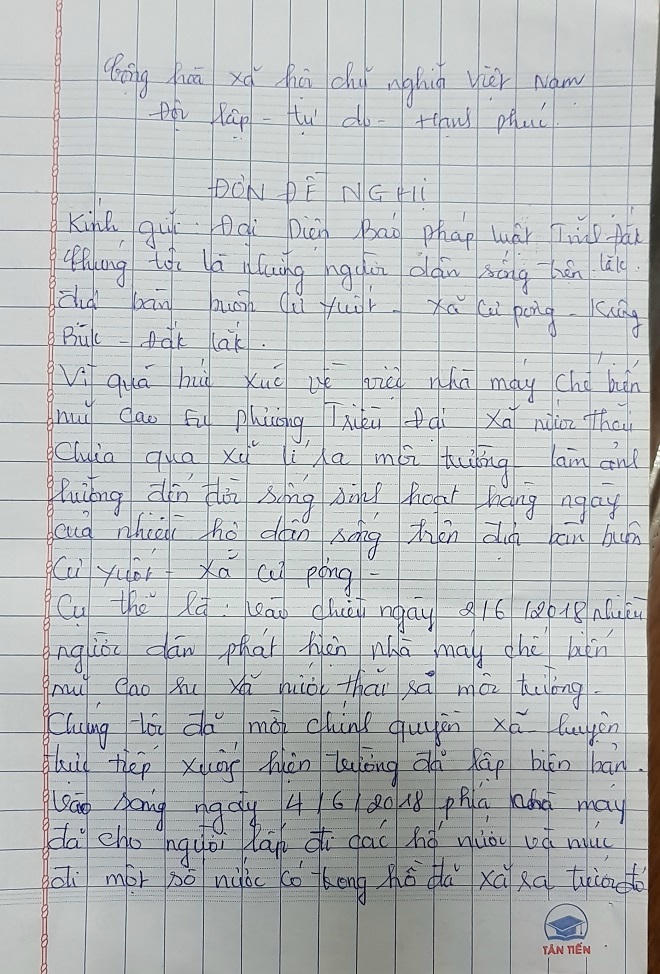 Cộng hoà xã hội chủ nghĩa Việt Nam
Độc lập - tự do - Hạnh phúc.
ĐƠN ĐỀ NGHỊ
Kính gửi: Đại Diện Báo pháp luật Tỉnh Đắk
lắk.
Chúng tôi là những người dân sống trên
địa bàn buôn Cư Yuốt - xã Cư pơng - Krông
Búk - Đắk lắk.
Vì quá búc xúc về việc nhà máy chế biến
mủ cao su phương Triều Đại xã nước thải
chưa qua xử lí ra môi trường làm ảnh
hưởng đến đời sống sinh hoạt hàng ngày
của nhiều hộ dân sống trên địa bàn buôn
Cư Yuốt - xã cư pơng -
Cụ thể là: vào chiều ngày 2/6/2018 nhiều
người dân phát hiện nhà máy chế biến
mủ cao su xã nước thải ra môi trường.
Chúng tôi đã mời chính quyền xã - huyện
trực tiếp xuống hiện trường đã lập biên bản.
vào sáng ngày 4/6/2018 phía nhà máy
đã cho người lấp đi các hố nước và múc
đi một số nước có trong hồ đã xã ra trước đó
TÂN TIẾN